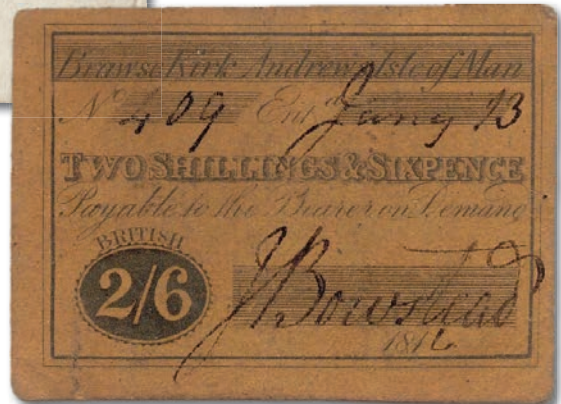 Brawse Kirk Andrews Isle of Man
No 409 Entd Jany 13
TWO SHILLINGS & SIXPENCE
Payable to the Bearer on Demand
BRITISH
2/6
J Bowstead
1816